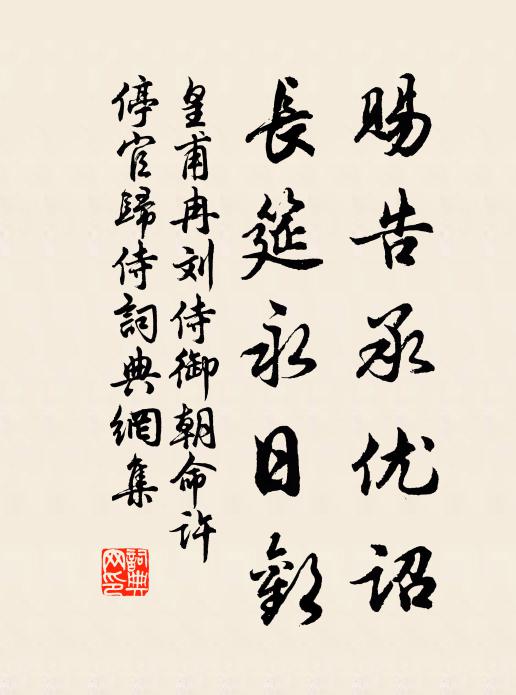 赐告承优诏
長筵永日歡
皇甫冉刘侍御朝命许
停官歸侍詞典網集
詞典
网印